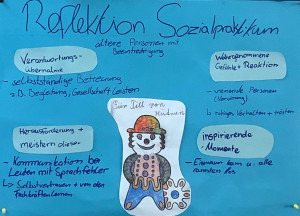 Reflektion Sozialpraktikum
ältere Personen mit
Beeinträchtigung
Verantwortungs-
übernahme
→ selbstständige Betreuung
z.B. Begleitung, Gesellschaft leisten
Wahrgenommene
Gefühle + Reaktion
→ Personen
(Verwirrung)
↳ ruhiges Verhalten +
Herausforderung +
meistern dieser
→ Kommunikation bei
Leuten mit Sprachfehler
↳ Selbstvertrauen + von den
Fachkräften lernen
Ein Bild von
inspirierende
Momente
→ u. alle